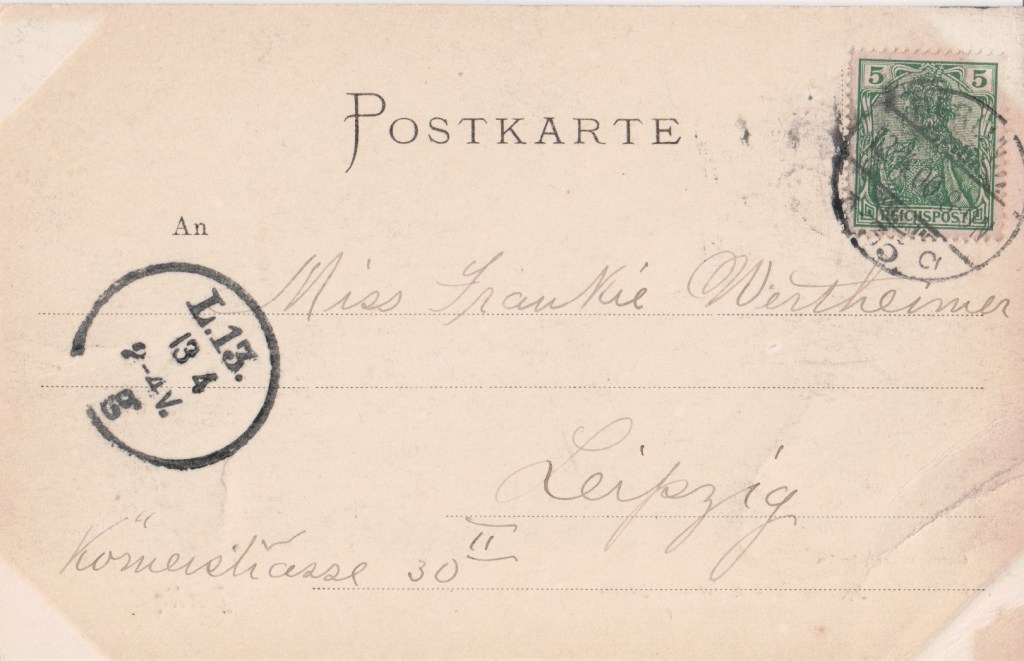 POSTKARTE
5 5
REICHSPOST
An
Miss Frankie Wertheimer
L.13.
13 4
2-4V.
g
Leipzig
Körnerstrasse 30 II